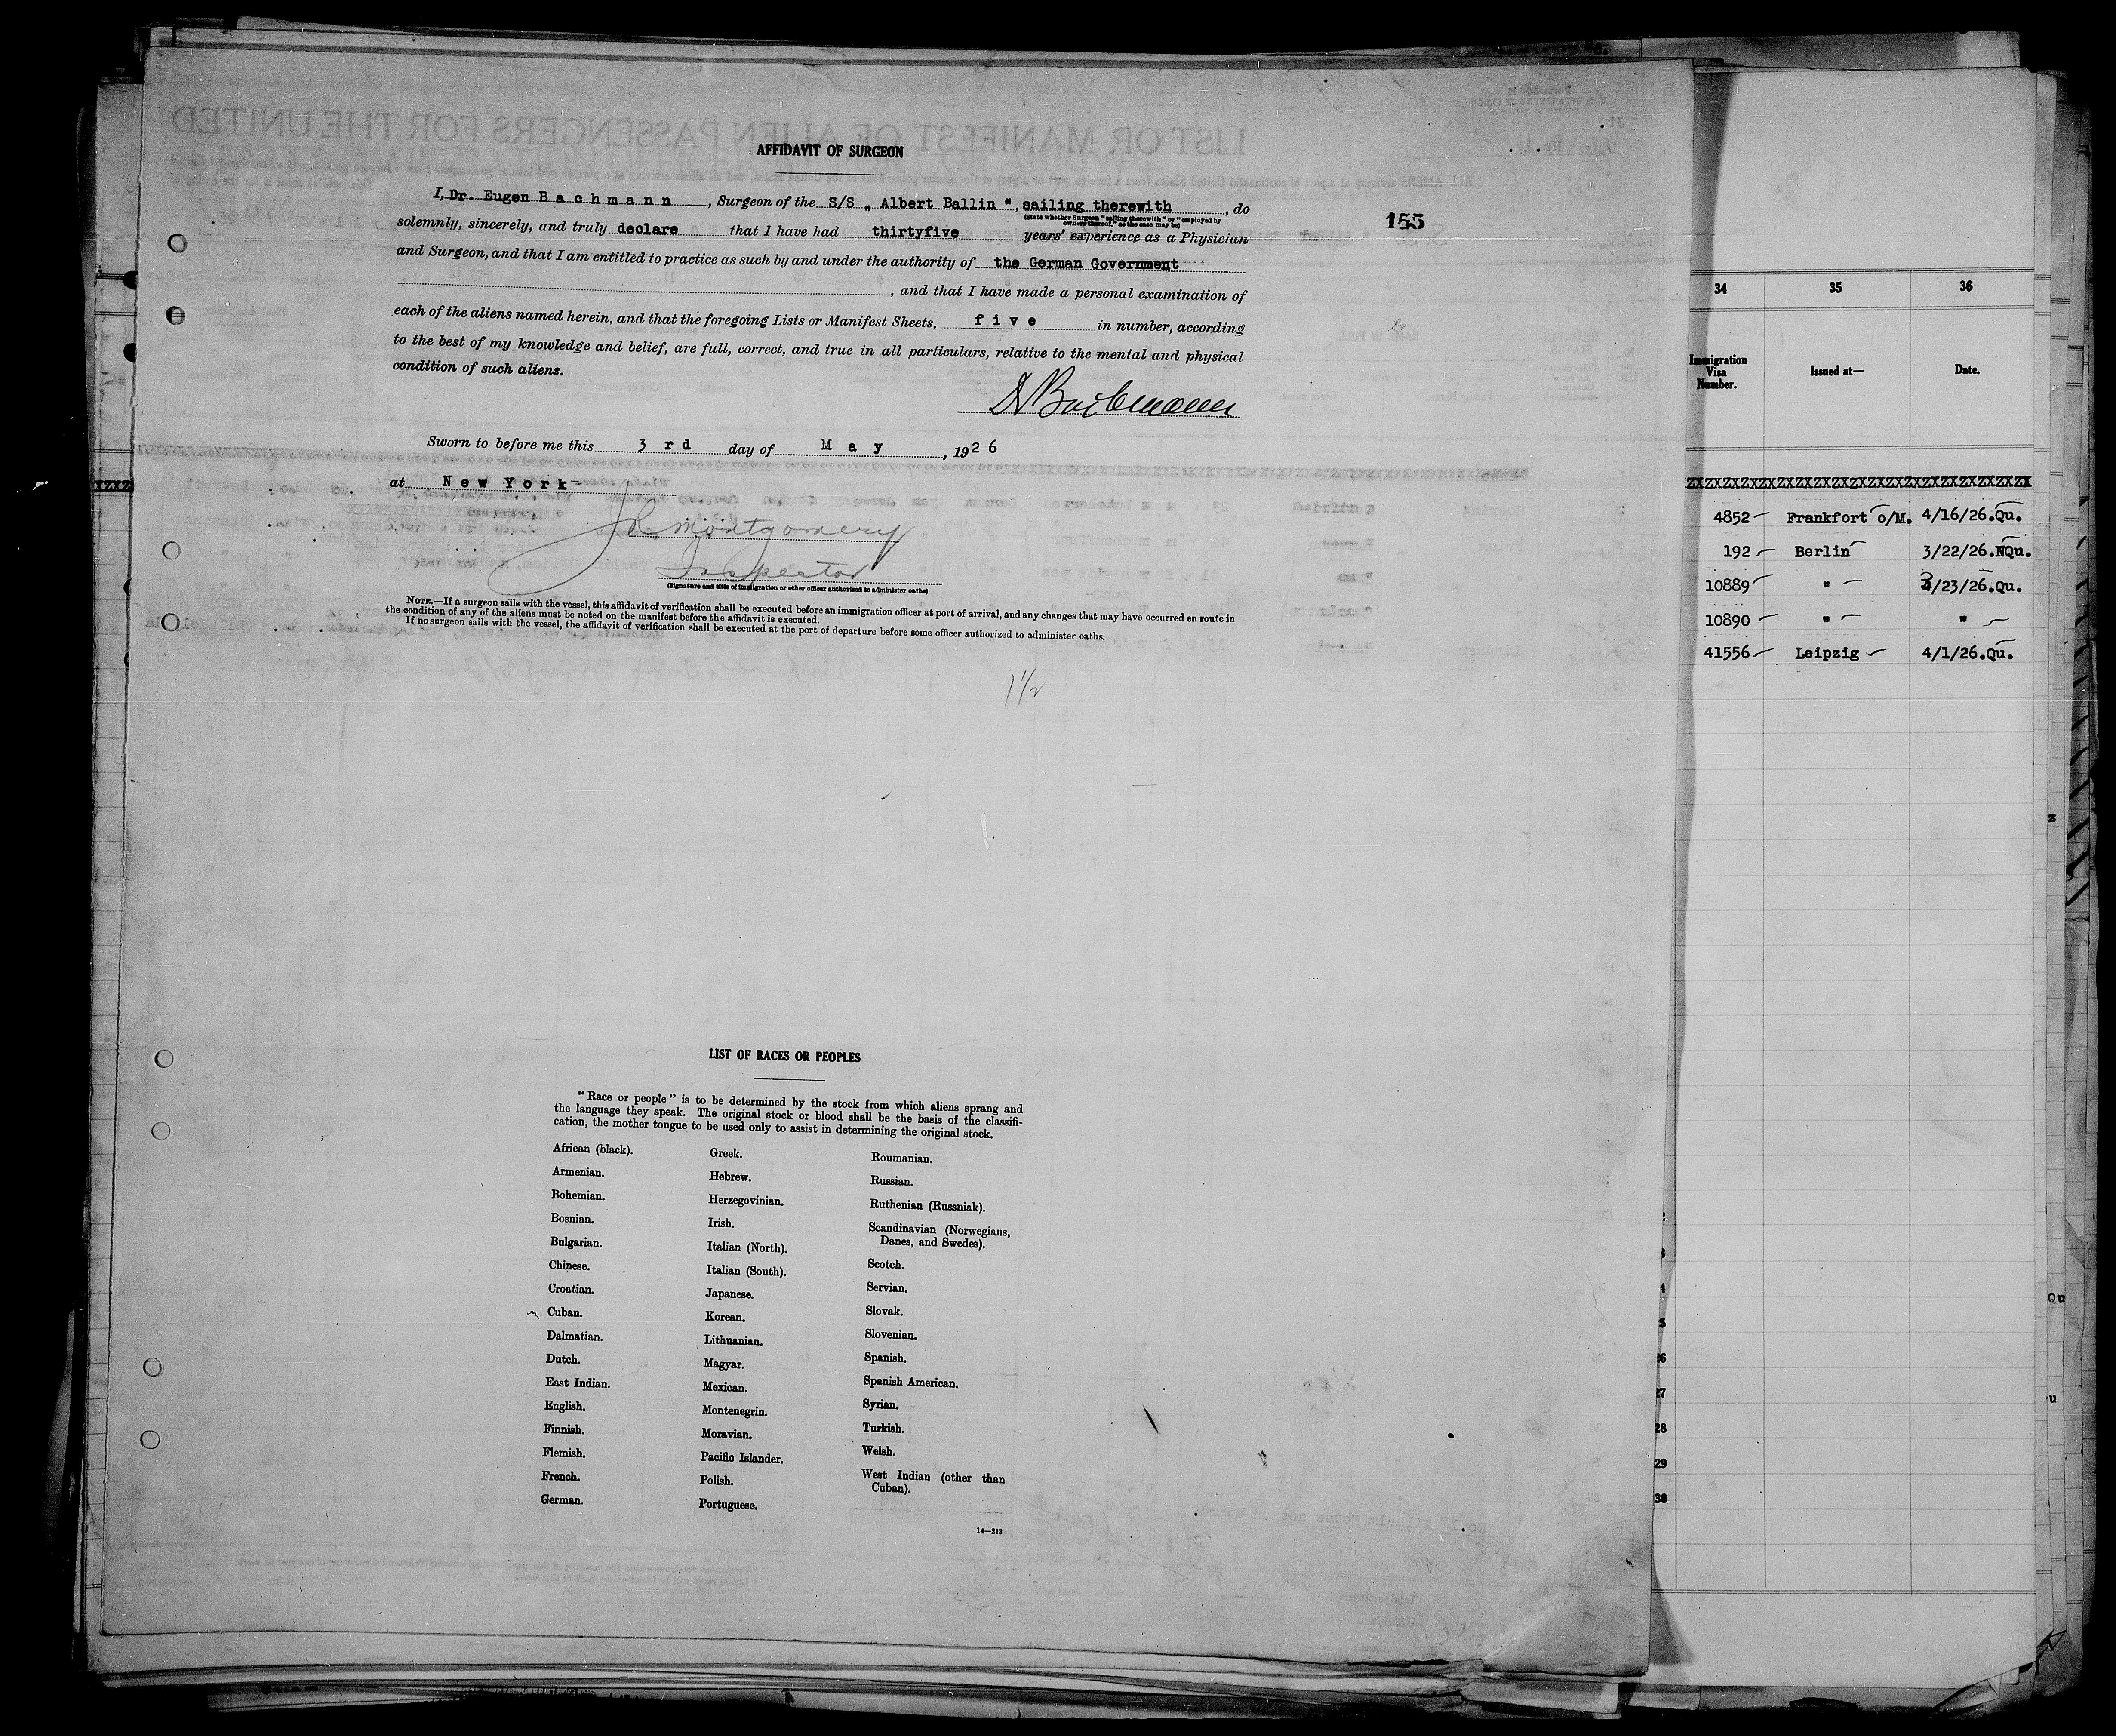 AFFIDAVIT OF SURGEON
I, Dr. Eugen B a c h m a n n, Surgeon of the S/S „ Albert Ballin ", sailing therewith, do
(State whether Surgeon "sailing therewith" or "employed by
owners thereof," as the case may be)
solemnly, sincerely, and truly declare that I have had thirtyfive years' experience as a Physician
and Surgeon, and that I am entitled to practice as such by and under the authority of the German Government
, and that I have made a personal examination of
each of the aliens named herein, and that the foregoing Lists or Manifest Sheets, f i v e in number, according
to the best of my knowledge and belief, are full, correct, and true in all particulars, relative to the mental and physical
condition of such aliens.
Bachmann
Sworn to before me this 3 rd day of M a y, 1926
at N e w Y o r k
Montgomery
Inspector
(Signature and title of immigration or other officer authorized to administer oaths)
NOTE.—If a surgeon sails with the vessel, this affidavit of verification shall be executed before an immigration officer at port of arrival, and any changes that may have occurred en route in
the condition of any of the aliens must be noted on the manifest before the affidavit is executed.
If no surgeon sails with the vessel, the affidavit of verification shall be executed at the port of departure before some officer authorized to administer oaths.
1 1/2
155
LIST OF RACES OR PEOPLES
"Race or people" is to be determined by the stock from which aliens sprang and
the language they speak. The original stock or blood shall be the basis of the classifi-
cation, the mother tongue to be used only to assist in determining the original stock.
African (black).
Armenian.
Bohemian.
Bosnian.
Bulgarian.
Chinese.
Croatian.
Cuban.
Dalmatian.
Dutch.
East Indian.
English.
Finnish.
Flemish.
French.
German.
Greek.
Hebrew.
Herzegovinian.
Irish.
Italian (North).
Italian (South).
Japanese.
Korean.
Lithuanian.
Magyar.
Mexican.
Montenegrin.
Moravian.
Pacific Islander.
Polish.
Portuguese.
Roumanian.
Russian.
Ruthenian (Russniak).
Scandinavian (Norwegians,
Danes, and Swedes).
Scotch.
Servian.
Slovak.
Slovenian.
Spanish.
Spanish American.
Syrian.
Turkish.
Welsh.
West Indian (other than
Cuban).
14—213
34 35 36
Immigration
Visa
Number.
Issued at—
Date.
ZXZXZXZXZXZXZXZXZXZXZXZXZXZXZXZXZXZX
4852 Frankfort o/M. 4/16/26.Qu.
192 Berlin 3/22/26.NQu.
10889 " 3/23/26.Qu.
10890 " "
41556 Leipzig 4/1/26.Qu.
26
27
28
29
30